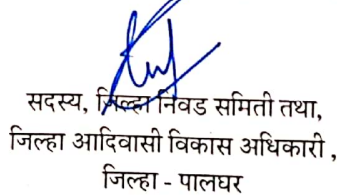 सदस्य, जिल्हा निवड समिती तथा,
जिल्हा आदिवासी विकास अधिकारी ,
जिल्हा - पालघर